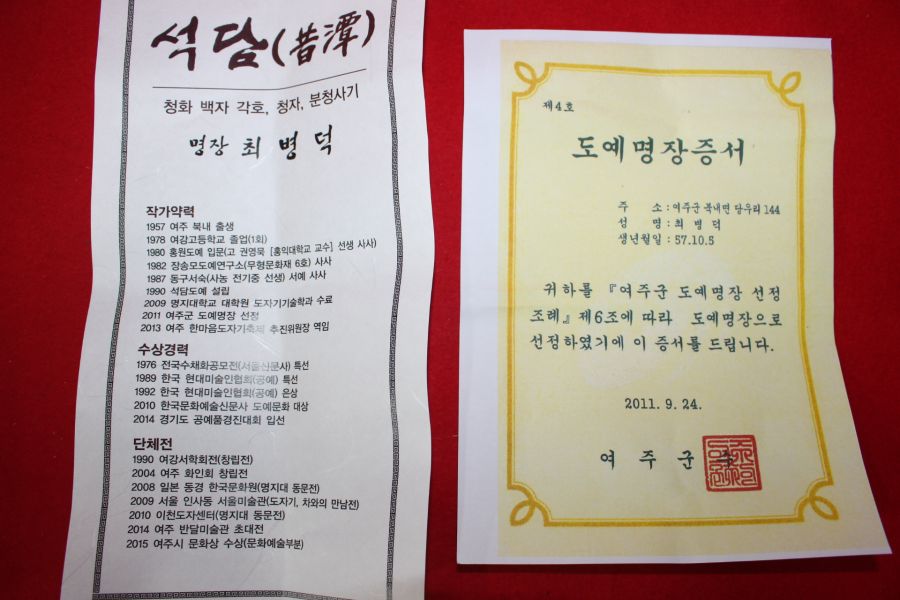 석담(昔潭)
청화 백자 각호, 청자, 분청사기
명장 최병덕
작가약력
1957 여주 북내 출생
1978 여강고등학교 졸업(1회)
1980 홍원도예 입문(고 권영묵 [홍익대학교 교수] 선생 사사)
1982 장송모도예연구소(무형문화재 6호) 사사
1987 동구서숙(사농 전기중 선생) 서예 사사
1990 석담도예 설립
2009 명지대학교 대학원 도자기기술학과 수료
2011 여주군 도예명장 선정
2013 여주 한마음도자기축제 추진위원장 역임
수상경력
1976 전국수채화공모전(서울신문사) 특선
1989 한국 현대미술인협회(공예) 특선
1992 한국 현대미술인협회(공예) 은상
2010 한국문화예술신문사 도예문화 대상
2014 경기도 공예품경진대회 입선
단체전
1990 여강서학회전(창립전)
2004 여주 화인회 창립전
2008 일본 동경 한국문화원(명지대 동문전)
2009 서울 인사동 서울미술관(도자기, 차와의 만남전)
2010 이천도자센터(명지대 동문전)
2014 여주 반달미술관 초대전
2015 여주시 문화상 수상(문화예술부분)
제4호
도예명장증서
주 소 : 여주군 북내면 당우리 144
성 명 : 최 병 덕
생년월일 : 57.10.5
귀하를 『여주군 도예명장 선정
조례』 제6조에 따라 도예명장으로
선정하였기에 이 증서를 드립니다.
2011. 9. 24.
여 주 군 수